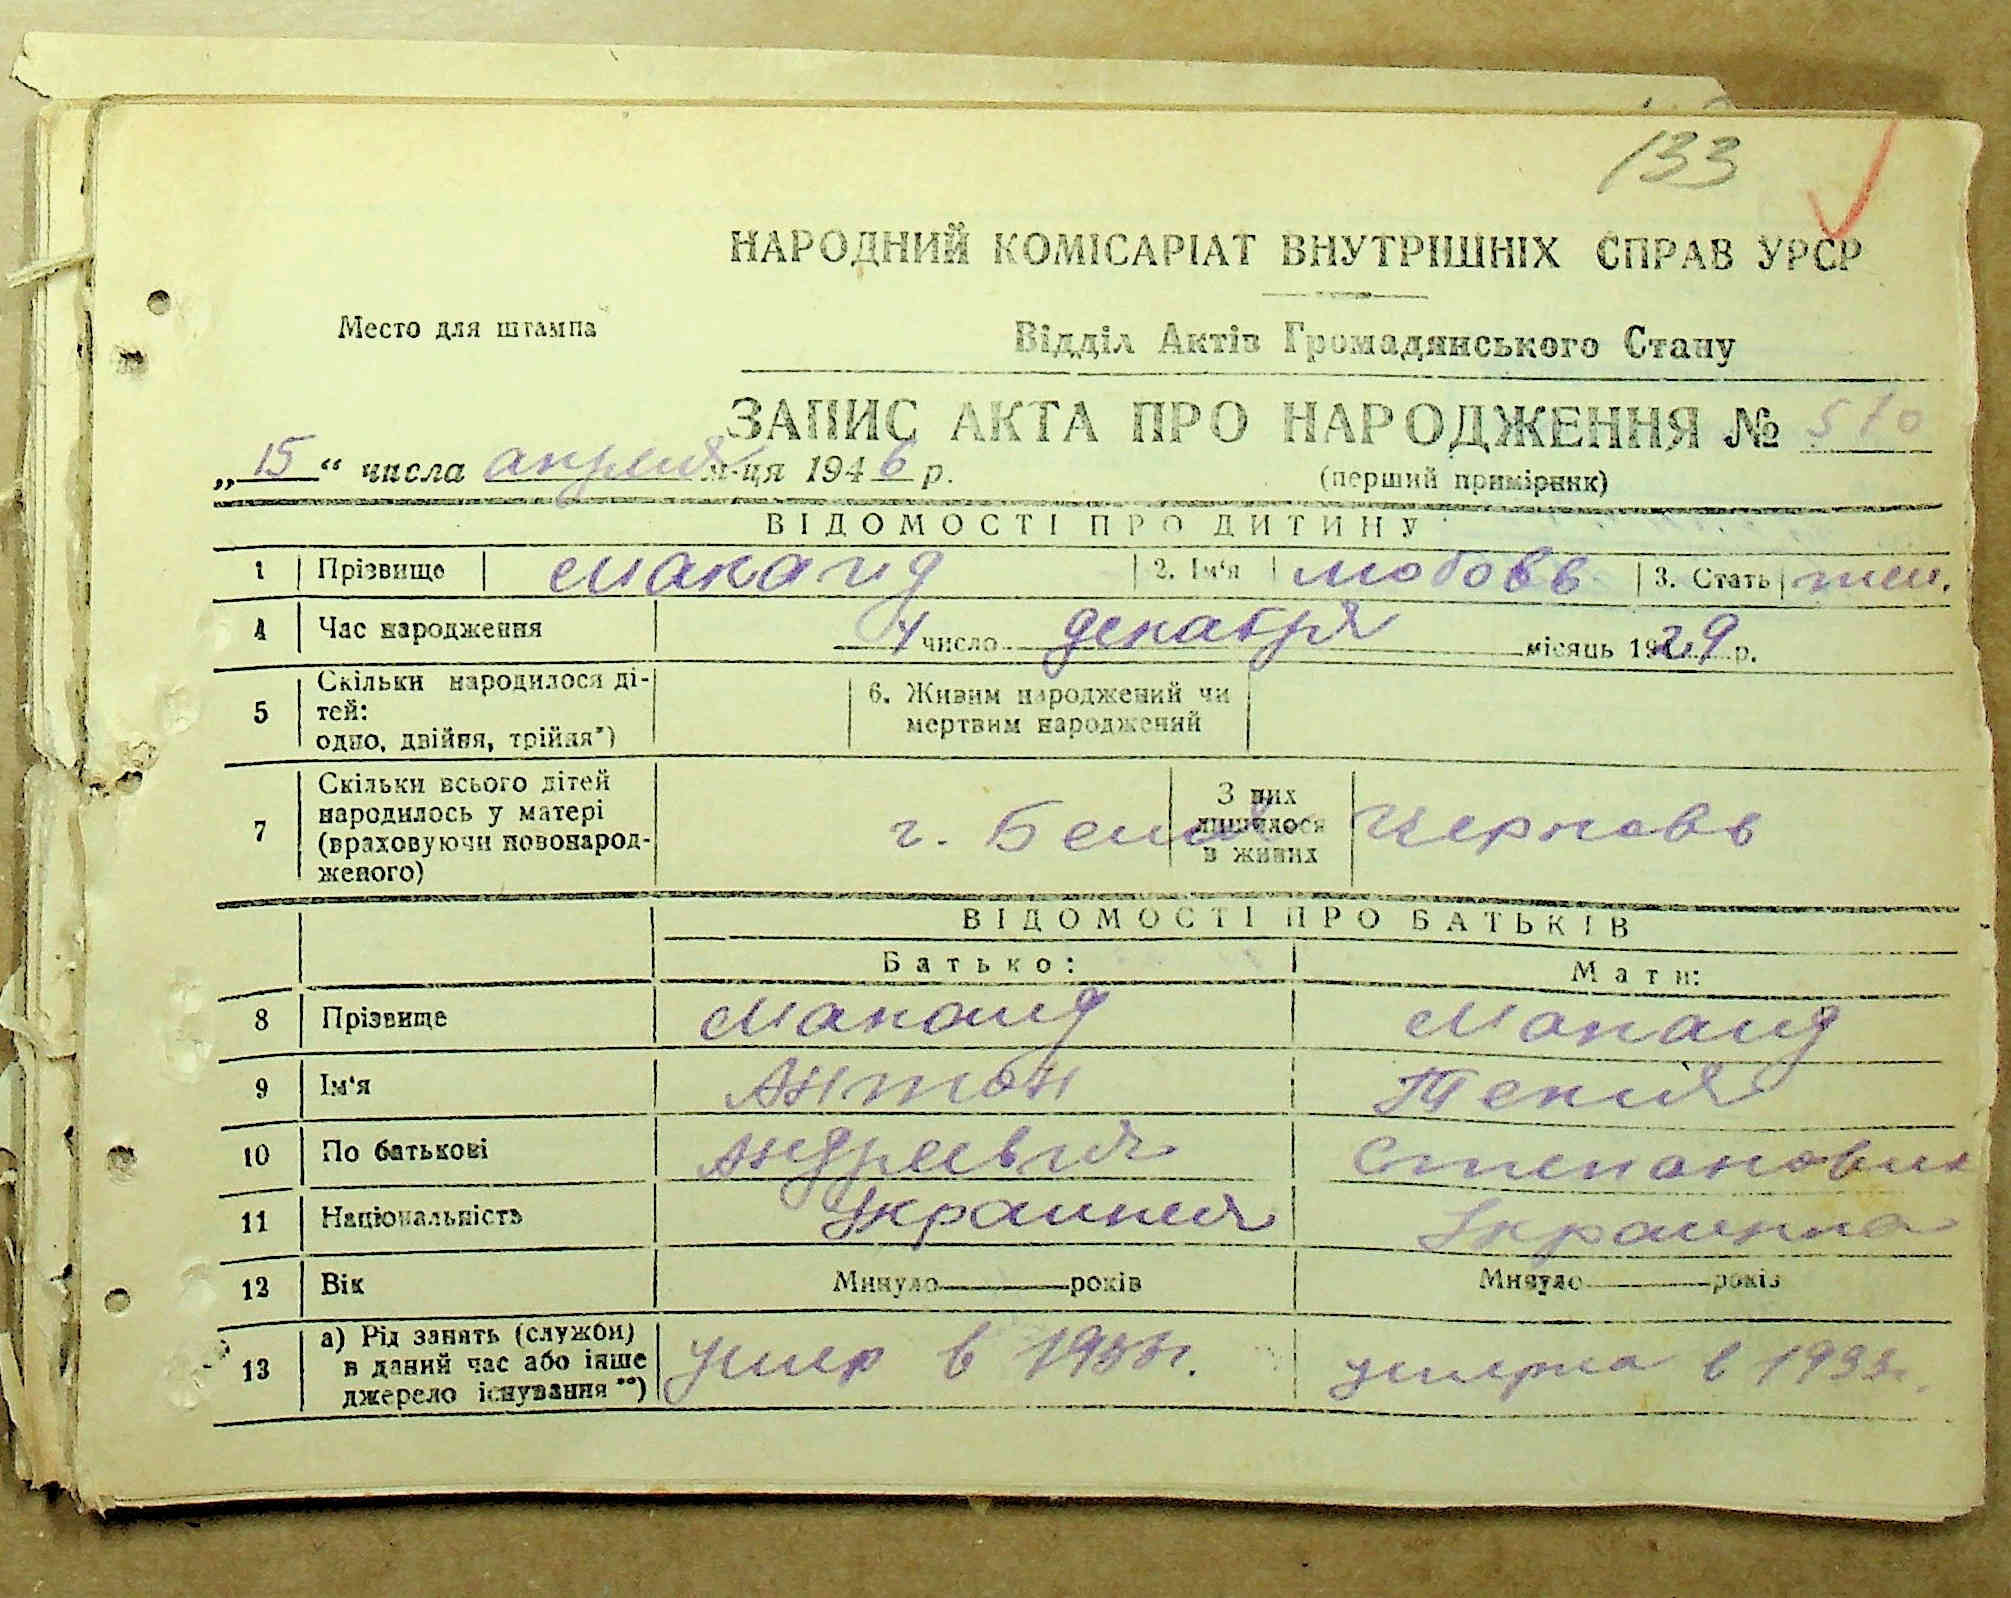 133
НАРОДНИЙ КОМІСАРІАТ ВНУТРІШНІХ СПРАВ УРСР
Место для штампа
Відділ Актів Громадянського Стану
ЗАПИС АКТА ПРО НАРОДЖЕННЯ № 510
„15“ числа апреля м-ця 1946 р.
(перший примірник)
ВІДОМОСТІ ПРО ДИТИНУ
1 Прізвище Макаид 2. Ім'я Любовь 3. Стать жен.
4 Час народження 4 число декабря місяць 1929 р.
5 Скільки народилося ді-
тей:
одно, двійня, трійня*)
6. Живим народжений чи
мертвим народжений
7 Скільки всього дітей
народилось у матері
(враховуючи новонарод-
женого)
З них
лишилося
в живих
г. Белая Церковь
ВІДОМОСТІ ПРО БАТЬКІВ
Батько: Мати:
8 Прізвище Макаид Макаид
9 Ім'я Антон
10 По батькові Андреевич Степановна
11 Національність Украинец Украинка
12 Вік Минуло років Минуло років
13 а) Рід занять (служби)
в даний час або інше
джерело існування **)
умер в 1933г. умерла в 1933г.